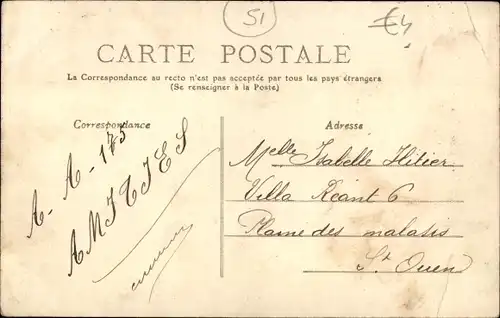 51
€4
CARTE POSTALE
La Correspondance au recto n'est pas acceptée par tous les pays étrangers
(Se renseigner à la Poste)
Correspondance
A-A-175
AMITIES
Adresse
Melle Isabelle Hitier
Villa Réant 6
Plaine des malasis
St Ouen